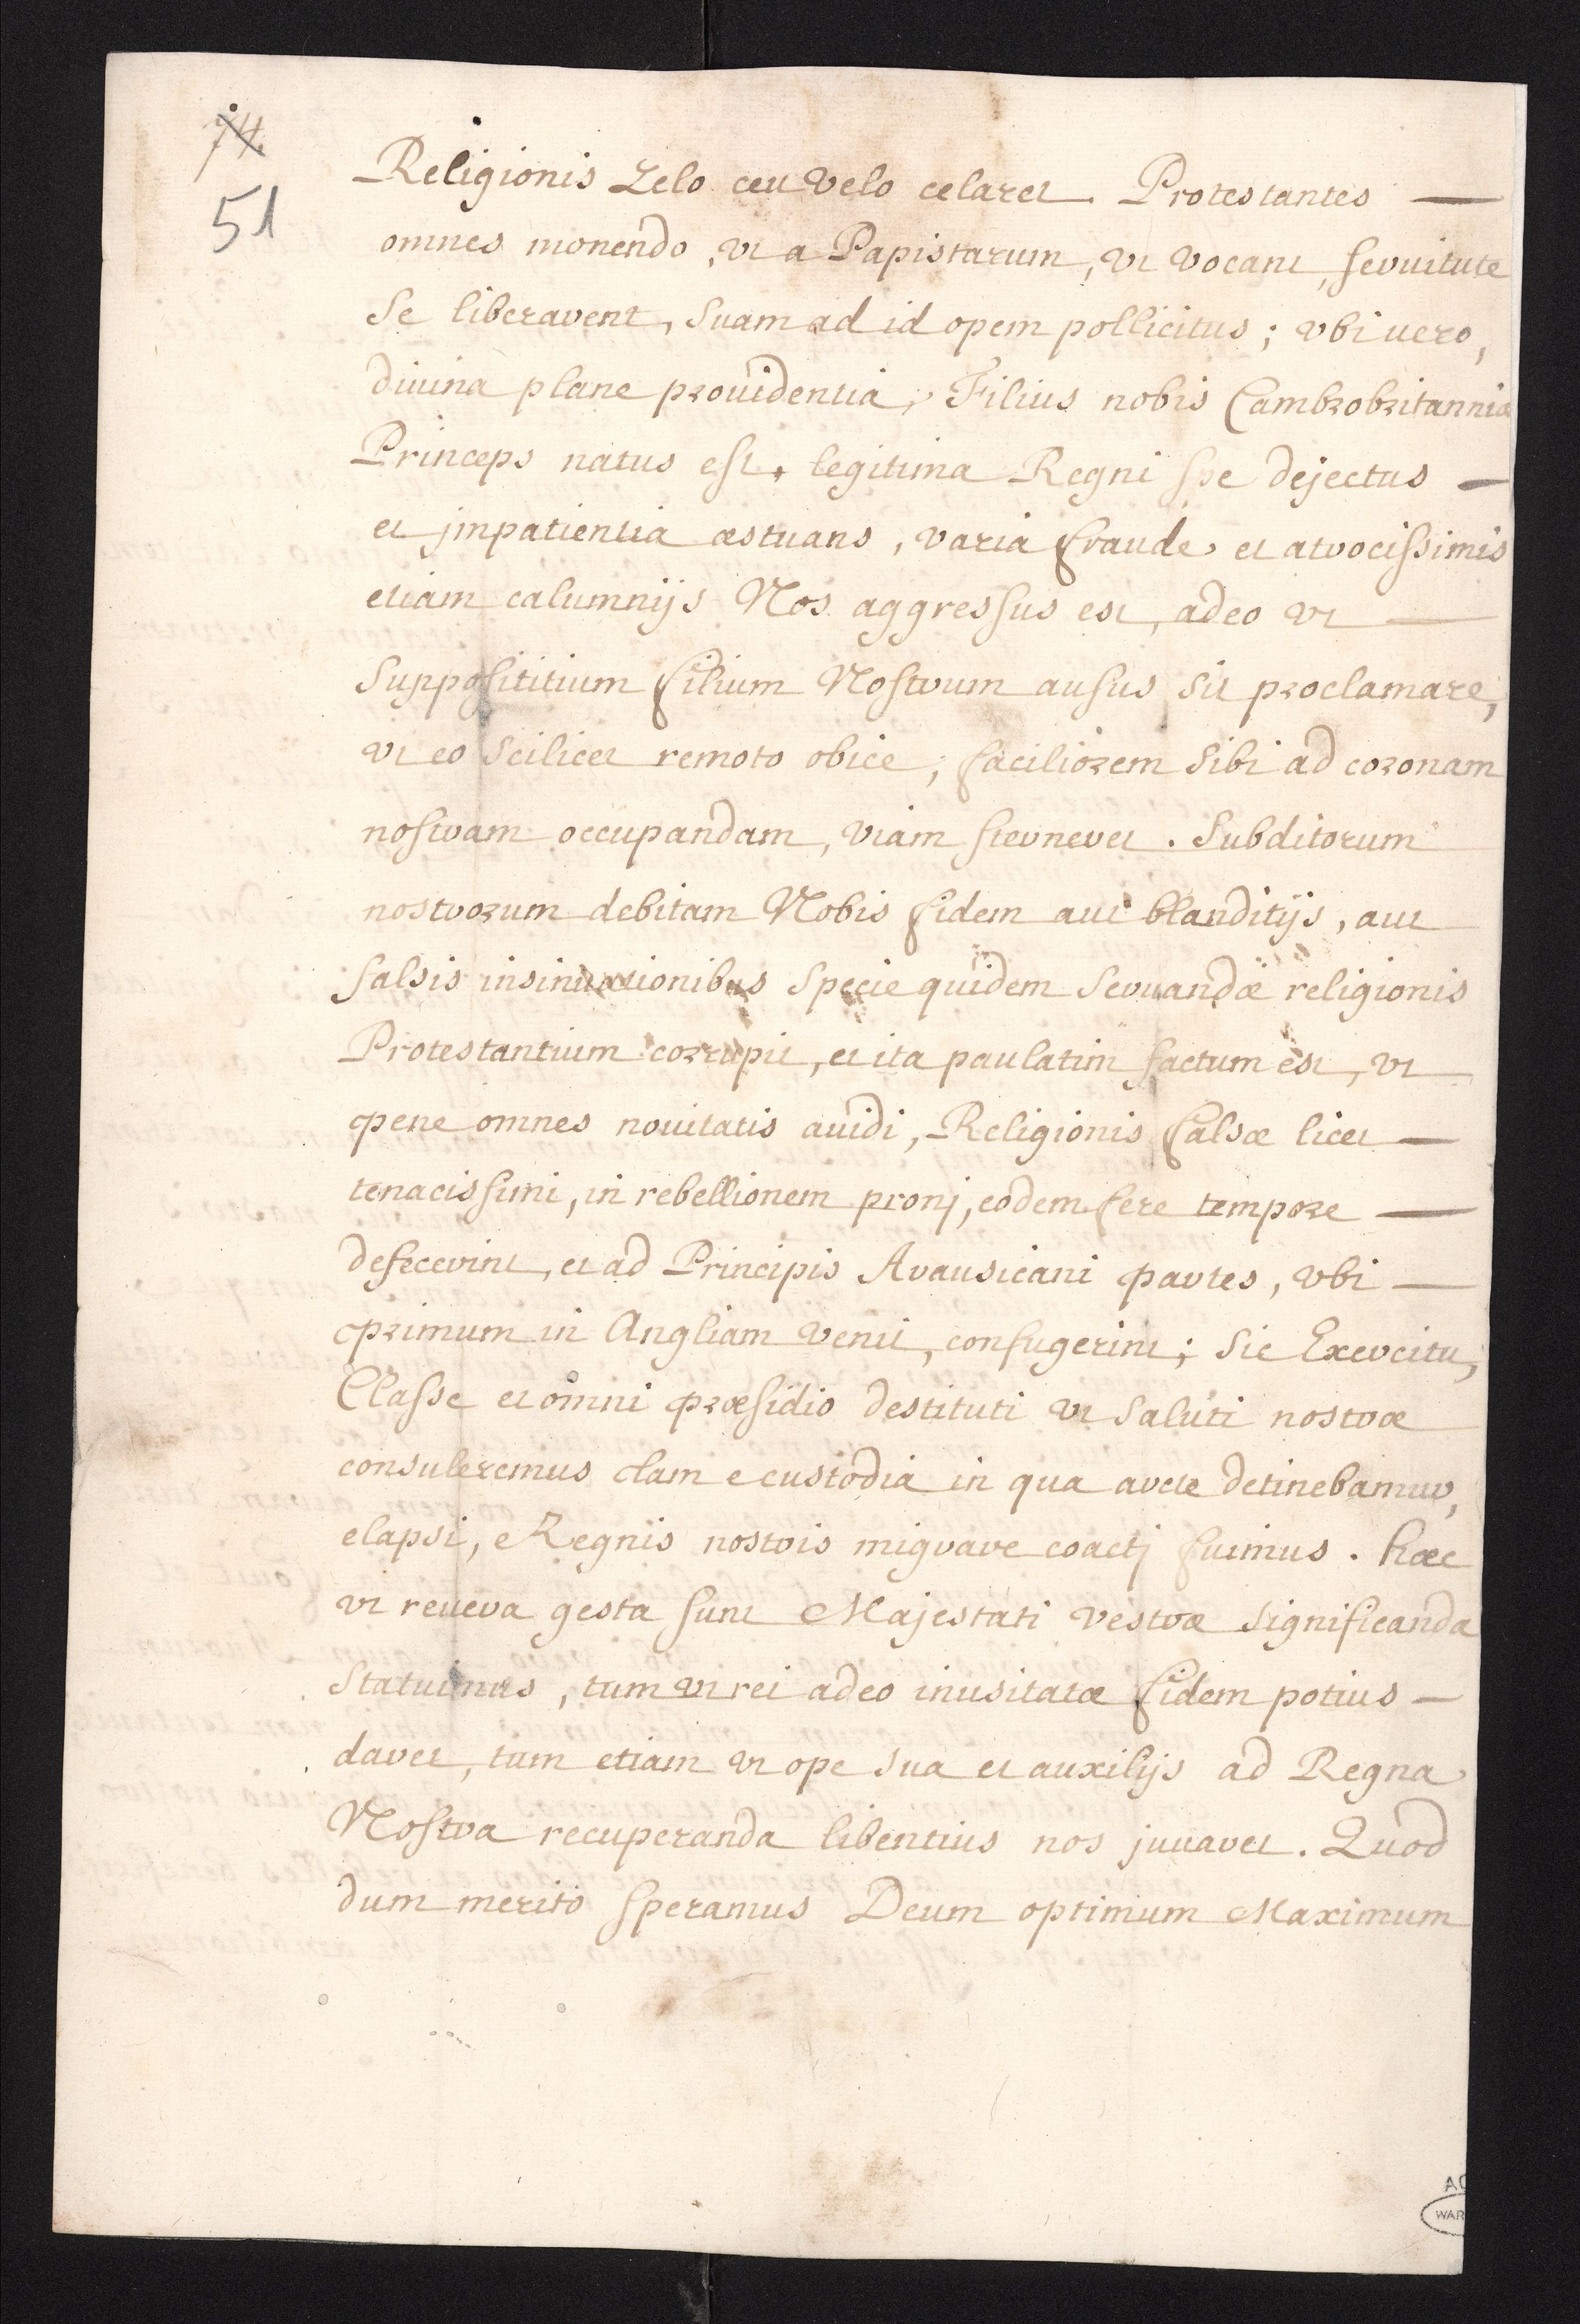 74
51
Religionis Zelo ceu velo celaret. Protestantes —
omnes monendo, ut a Papistarum, ut vocant, servitute
se liberarent, suam ad id opem pollicitus; ubi uero,
diuina plane prouidentia, Filius nobis Cambrobritanniæ
Princeps natus est, legitima Regni spe dejectus —
et jmpatientia æstuans, varia fraude et atrocissimis
etiam calumnijs Nos aggressus est, adeo ut —
Supposititium filium Nostrum ausus sit proclamare,
ut eo scilicet remoto obice, faciliorem sibi ad coronam
nostram occupandam, viam sterneret. Subditorum
nostrorum debitam Nobis fidem aut blanditijs, aut
falsis insinuationibus specie quidem servandæ religionis
Protestantium corrupit, et ita paulatim factum est, ut
pene omnes nouitatis auidi, Religionis falsæ licet —
tenacissimi, in rebellionem pronj, eodem fere tempore —
defecerint, et ad Principis Arausicani partes, vbi —
primum in Angliam venit, confugerint; sic Exercitu,
Classe et omni præsidio destituti ut saluti nostræ
consuleremus clam e custodia in qua arcte detinebamur,
elapsi, e Regnis nostris migrare coactj fuimus. hæc
ut revera gesta sunt Majestati vestræ significanda
statuimus, tum ut rei adeo inusitatæ fidem potius —
daret, tum etiam ut ope sua et auxilijs ad Regna
Nostra recuperanda libentius nos juuaret. Quod
dum merito speramus Deum optimum Maximum
AG
WAR